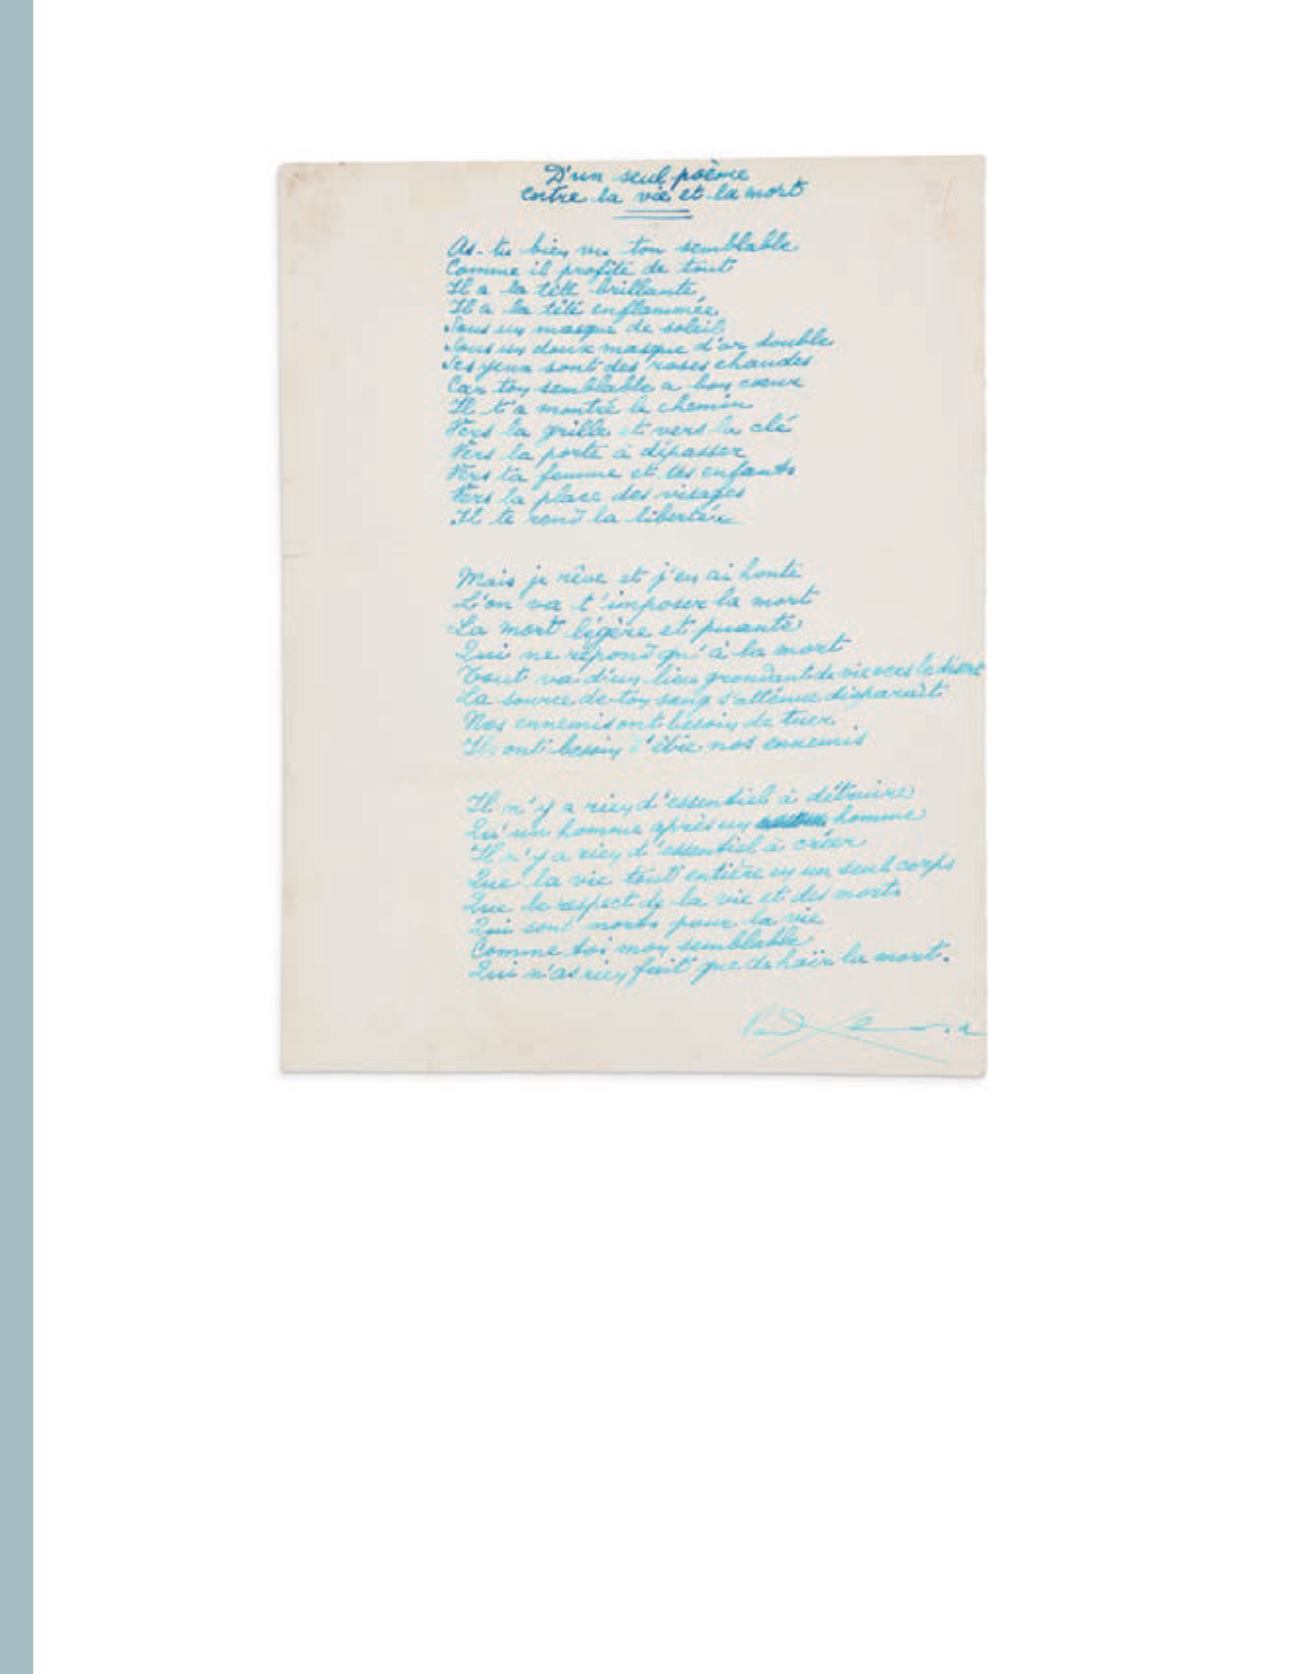 D'un seul poème
entre la vie et la mort
As-tu bien vu ton semblable
Comme il profite de tout
Il a la tête brillante
Il a la tête enflammée
Sous un masque de soleil
Sous un doux masque d'or double
Ses yeux sont des roses chaudes
Car ton semblable a bon cœur
Il t'a montré le chemin
Vers la grille et vers la clé
Vers la porte à dépasser
Vers ta femme et tes enfants
Vers la place des visages
Il te rend la liberté.
Mais je rêve et j'en ai honte
L'on va t'imposer la mort
La mort légère et puante
Qui ne répond qu'à la mort
Tout va d'un lieu grondant de vie vers le désert
La source de ton sang s'atténue disparaît
Nos ennemis ont besoin de tuer
Ils ont besoin d'être nos ennemis
Il n'y a rien d'essentiel à détruire
Qu'un homme après un homme
Il n'y a rien d'essentiel à créer
Que la vie tout entière en un seul corps
Que le respect de la vie et des morts
Qui sont morts pour la vie
Comme toi mon semblable
Qui n'as rien fait que de haïr la mort.